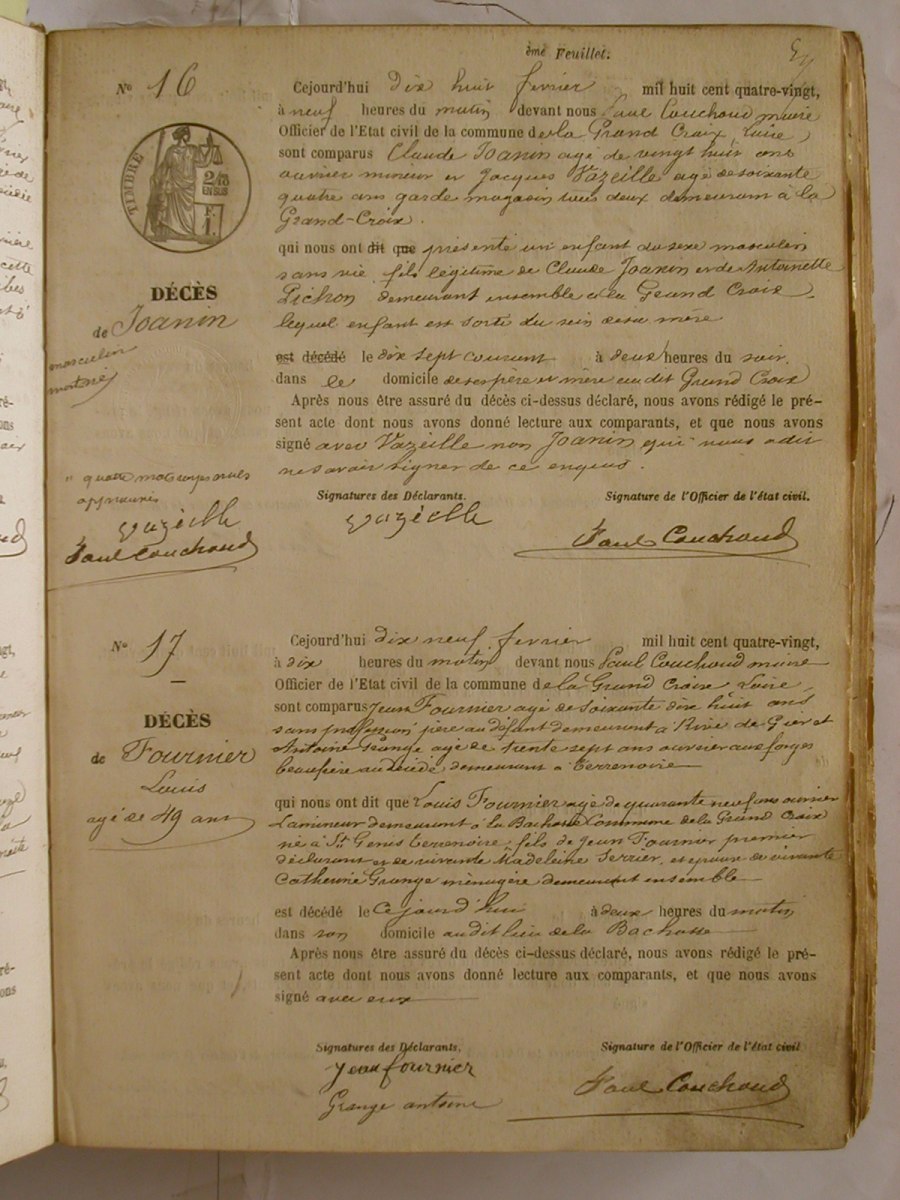 ème Feuillet.
N° 16
TIMBRE
2/10
EN SUS
F.
1.
DÉCÈS
de Joanin
masculin
mort né
" quatre mots rayés nuls
approuvés
Vazeille
Paul Couchoud
Cejourd'hui dix huit fevrier mil huit cent quatre-vingt,
à neuf heures du matin devant nous Paul Couchoud maire
Officier de l'Etat civil de la commune de la Grand Croix, Loire,
sont comparus Claude Joanin agé de vingt huit ans
ouvrier mineur et Jacques Vazeille agé de soixante
quatre ans garde magasin tous deux demeurant à la
Grand-Croix.
qui nous ont dit que présenté un enfant du sexe masculin
sans vie fils légitime de Claude Joanin et de Antoinette
Pichon demeurant ensemble à la Grand Croix,
lequel enfant est sorti du sein de sa mère
est décédé le dix sept courant à deux heures du soir,
dans le domicile de ses père et mère au dit Grand Croix
Après nous être assuré du décès ci-dessus déclaré, nous avons rédigé le pré-
sent acte dont nous avons donné lecture aux comparants, et que nous avons
signé avec Vazeille non Joanin qui nous a dit
ne savoir signer de ce enquis.
Signatures des Déclarants. Signature de l'Officier de l'état civil.
Vazeille Paul Couchoud
N° 17
DÉCÈS
de Fournier
Louis
agé de 49 ans
Cejourd'hui dix neuf fevrier mil huit cent quatre-vingt,
à dix heures du matin devant nous Paul Couchoud maire
Officier de l'Etat civil de la commune de la Grand Croix, Loire,
sont comparus Jean Fournier agé de soixante dix huit ans
sans profession père au défunt demeurant à Rive de Gier et
Antoine Grange agé de trente sept ans ouvrier aux forges
beaufrère au décédé demeurant à Terrenoire
qui nous ont dit que Louis Fournier agé de quarante neuf ans ouvrier
Lamineur demeurant à la Bachasse Commune de la Grand Croix
né à St Genis Terrenoire, fils de Jean Fournier premier
déclarant et de vivante Madeleine Serrier, et époux de vivante
Catherine Grange ménagère demeurant ensemble
est décédé le Cejourd'hui à deux heures du matin
dans son domicile au dit lieu de la Bachasse
Après nous être assuré du décès ci-dessus déclaré, nous avons rédigé le pré-
sent acte dont nous avons donné lecture aux comparants, et que nous avons
signé avec eux
Signatures des Déclarants. Signature de l'Officier de l'état civil
Jean fournier
Grange antoine Paul Couchoud